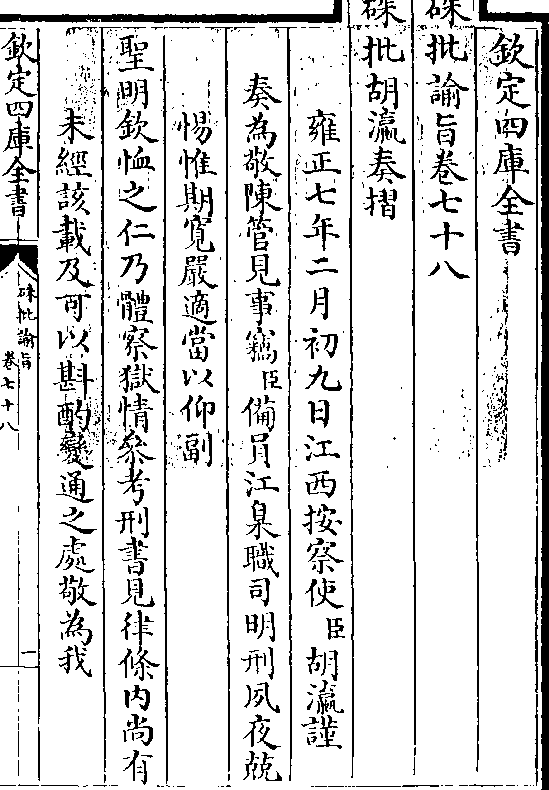 欽定四庫全書
硃批諭旨卷七十八
硃批胡瀛奏摺
雍正七年二月初九日江西按察使臣胡瀛謹
奏為敬陳管見事竊臣備員江臬職司明刑夙夜兢
惕惟期寛嚴適當以仰副
聖明欽恤之仁乃體察獄情叅考刑書見律條內尚有
未經該載及可以斟酌變通之處敬為我
欽定四庫全書
硃批諭旨
卷七十八
一